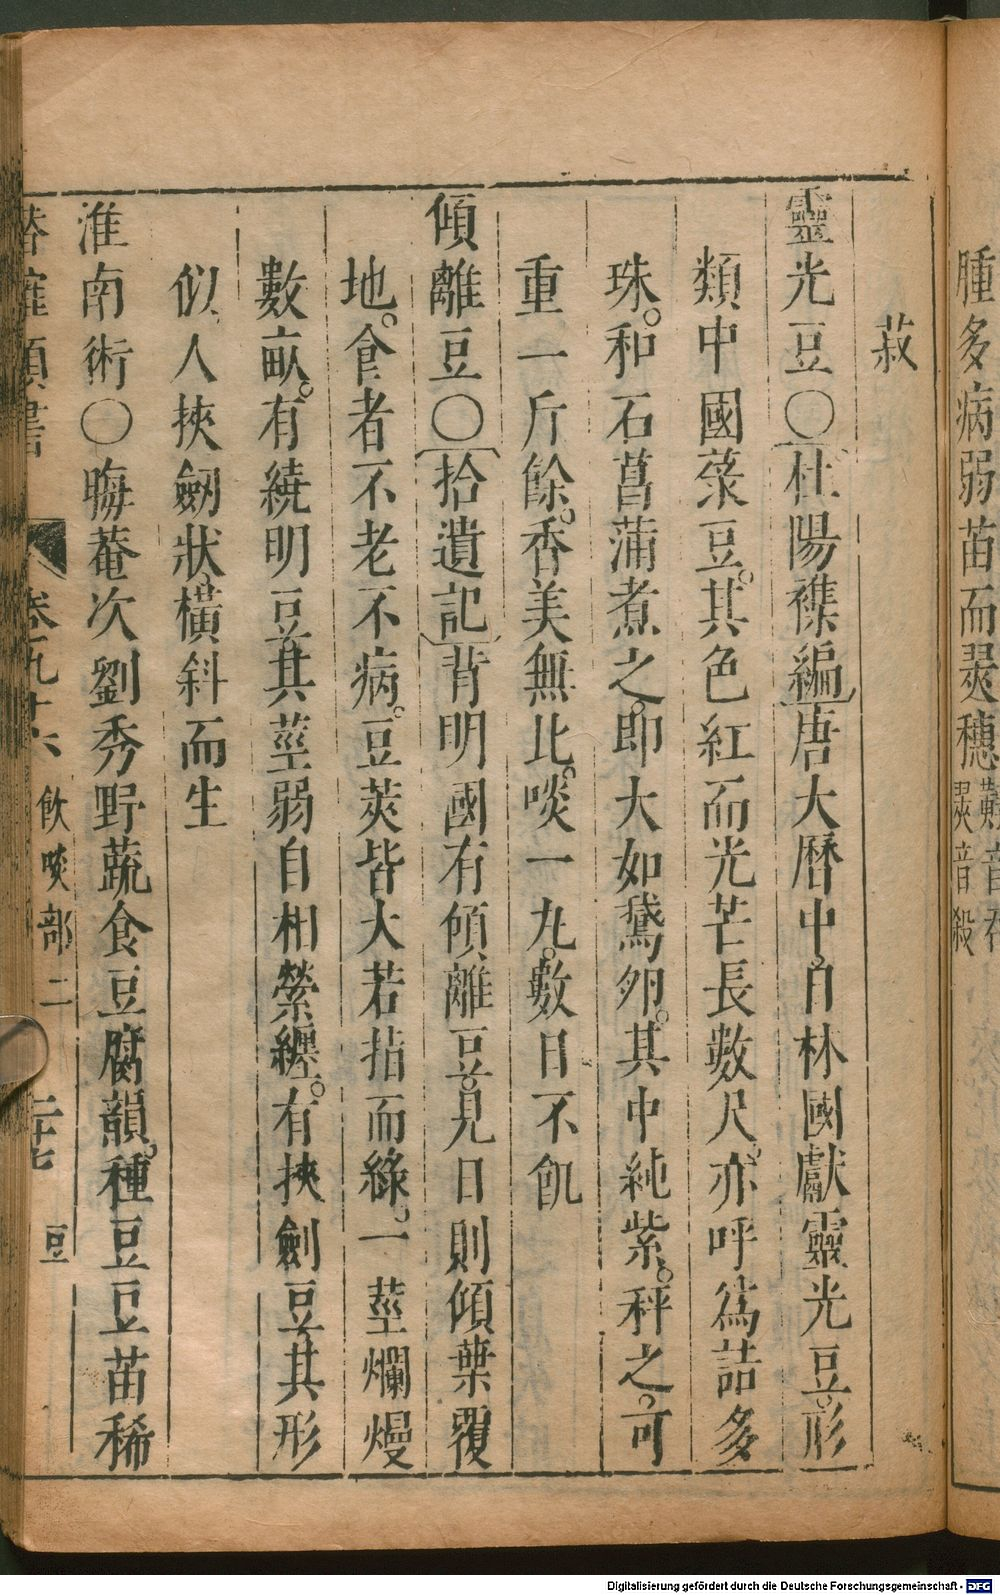 腫多病弱苗而𦐂穗
菽
靈光豆○杜陽襍編唐大曆中。日林國獻靈光豆。形
類中國菉豆。其色紅而光芒長數尺。亦呼爲詰多
珠。和石菖蒲煮之。即大如鵞卵。其中純紫。秤之。可
重一斤餘。香美無比。啖一丸。數日不飢
傾離豆○拾遺記背明國有傾離豆。見日則傾葉覆
地。食者不老不病。豆莢皆大若指而綠。一莖爛熳
數畝。有繞明豆。其莖弱自相縈纏。有挾劍豆。其形
似人挾劒狀。橫斜而生
淮南術○晦菴次劉秀野蔬食豆腐韻。種豆豆苗稀
卷九十六 飲啖部二 二十七 豆
Digitalisierung gefördert durch die Deutsche Forschungsgemeinschaft - DFG